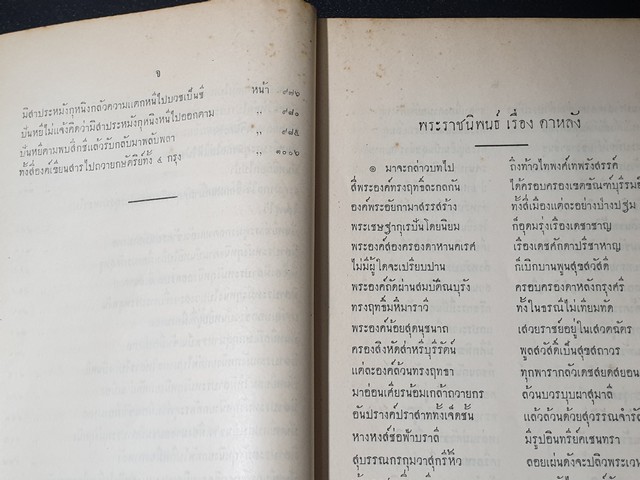 ฐ
มิสาประหมังกุหนิงกลัวความแตกหนีไปบวชเป็นชี หน้า ๙๗๖
บันหยีไม่แจ้งคิดว่ามิสาประหมังกุหนิงหนีไปออกตาม ,, ๙๘๐
บันหยีตามพบสึกชีแล้วรับกลับมาพลับพลา ,, ๙๘๕
ทั้งสี่องค์เขียนสารไปถวายกษัตริย์ทั้ง ๔ กรุง ,, ๑๐๐๖
พระราชนิพนธ์ เรื่อง ดาหลัง
๏ มาจะกล่าวบทไป ถึงท้าวไทพงศ์เทพรังสรรค์
สี่พระองค์ทรงฤทธิ์ละกลกัน ได้ครอบครองเขตขัณฑ์บุรีรมย์
องค์พระอัยกามาสรรสร้าง ทั้งสี่เมืองแต่ละอย่างปางปฐม
พระเชษฐากุเรปันโดยนิยม ก็อุดมรุ่งเรืองเดชาชาญ
พระองค์สองครองดาหานคเรศ เรืองเดชศักดาปรีชาหาญ
ไม่มีผู้ใดจะเปรียบปาน ก็เบิกบานพูนสุขสวัสดี
พระองค์ถัดผ่านสมบัติณบุรัง ครอบครองกาหลังกรุงศรี
ทรงฤทธิ์มหิมาราวี ทั้งในธรณีไม่เทียมทัด
พระองค์น้อยสุดนุชนาถ เสวยราชย์อยู่ในเสวตฉัตร
ครองสิงหัดส่าหรีบุรีรัตน์ พูลสวัสดิ์เป็นสุขสถาวร
แต่ละองค์ล้วนทรงฤทธา ทุกพารากลัวเดชสยดสยอน
มาอ่อนเศียรน้อมเกล้าถวายกร ล้วนบวรบุบผาสุมาลี
อันปรางค์ปราสาททั้งเจ็ดชั้น แล้วล้วนด้วยสุวรรณจำรัส
หางหงส์ช่อฟ้าบราลี มีรูปอินทรีย์คเชนทรา
สุบรรณกรกุมวาสุกรีหิ้ว ลอยเผ่นดังจะปลิวพระเวหา